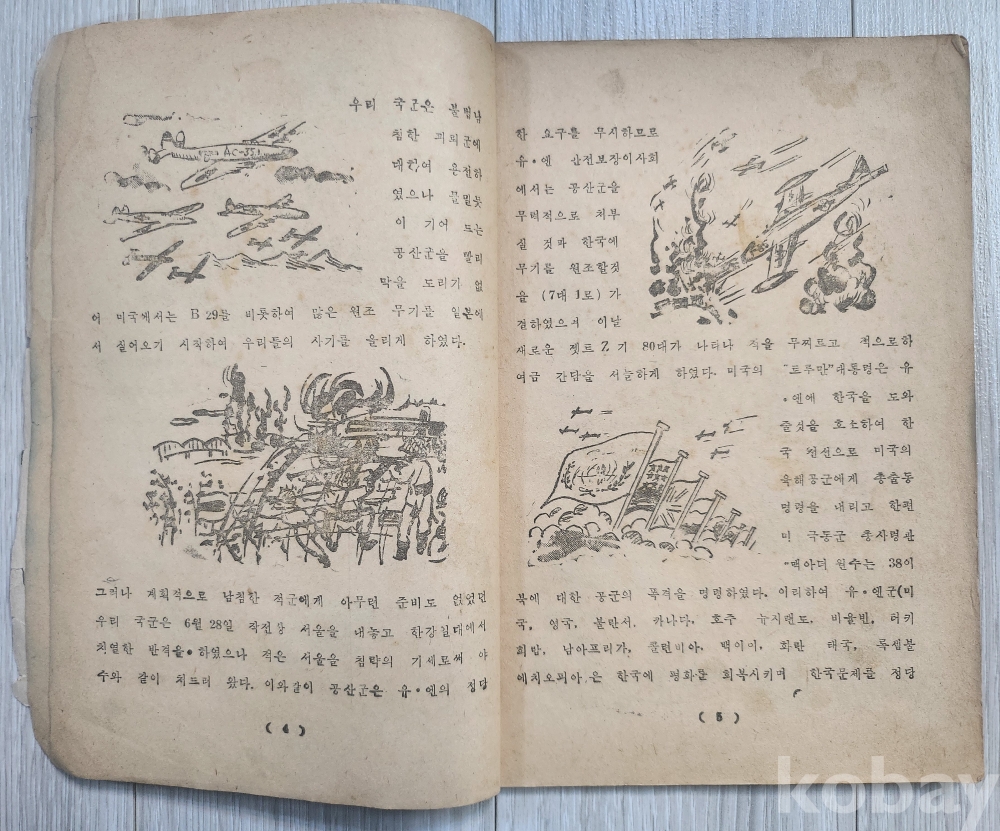 우리 국군은 불법남
침한 괴뢰군에
대하여 온전히
였으나 물밀듯
이 기어 드는
공산군을 빨리
막을 도리가 없
AC-35
어 미국에서는 B 29를 비롯하여 많은 원조 무기를 일본에
서 실어오기 시작하여 우리들의 사기를 올리게 하였다.
그러나 계획적으로 남침한 적군에게 아무런 준비도 없었던
우리 국군은 6월 28일 작전상 서울을 내놓고 한강일대에서
치열한 반격을·하였으나 적은 서울을 침략의 기세로써 야
수와 같이 치드러 왔다. 이와같이 공산군은 유·엔의 정당
( 4 )
한 요구를 무시하므로
유·엔 안전보장이사회
에서는 공산군을
무력적으로 처부
실 것과 한국에
무기를 원조할것
을 (7대 1로) 가
결하였으며 이날
새로운 젯트 Z 기 80대가 나타나 적을 무찌르고 적으로하
여금 간담을 서늘하게 하였다. 미국의 "트루만"대통령은 유
·엔에 한국을 도와
줄것을 호소하여 한
국 전선으로 미국의
육해공군에게 총출동
명령을 내리고 한편
미 극동군 총사령관
"맥아더 원수는 38이
북에 대한 공군의 폭격을 명령하였다. 이리하여 유·엔군(미
국, 영국, 불란서, 카나다, 호주 뉴지랜드, 비율빈, 터키
희랍, 남아프리가, 콜럼비아, 백이미, 화란 태국, 룩셈불
에치오피아 은 한국에 평화를 회복시키며 한국문제를 정당
( 5 )
kobay